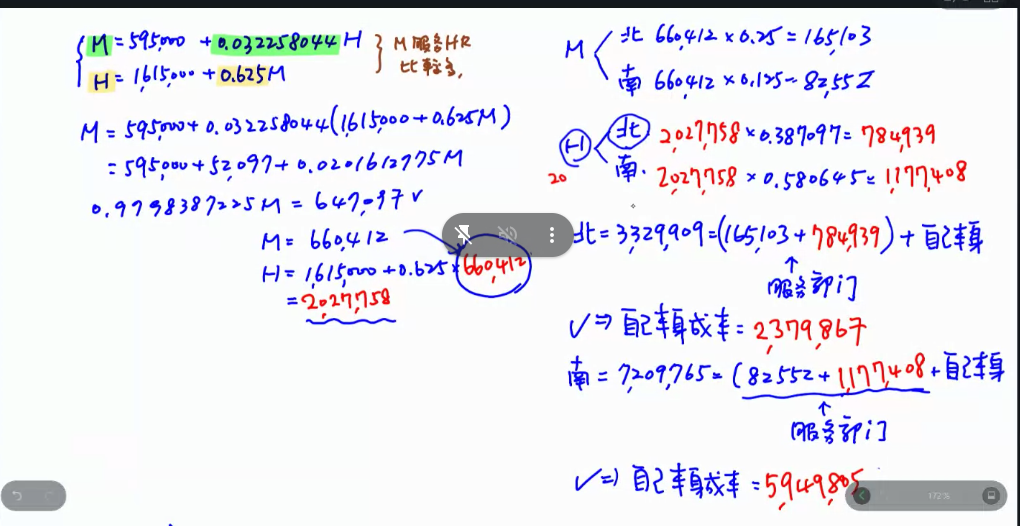 M = 595,000 + 0.032258044 H
H = 1,615,000 + 0.625M
M 服务HR
比较多,
M = 595,000 + 0.032258044(1,615,000 + 0.625M)
= 595,000 + 52,097 + 0.0201612775M
0.9798387225M = 647,097 ✓
M = 660,412
H = 1,615,000 + 0.625 × 660,412
= 2,027,758
M
北 660,412 × 0.25 = 165,103
南 660,412 × 0.125 = 82,552
H
20
北 2,027,758 × 0.387097 = 784,939
南. 2,027,758 × 0.580645 = 1,177,408
北 = 3,329,909 = (165,103 + 784,939) + 自己本身
↑
服务部门
✓ ⇒ 自己本身成本 = 2,379,867
南 = 7,209,765 = (82552 + 1,177,408 + 自己本身
↑
服务部门
✓ ⇒ 自己本身成本 = 5,949,805
172%